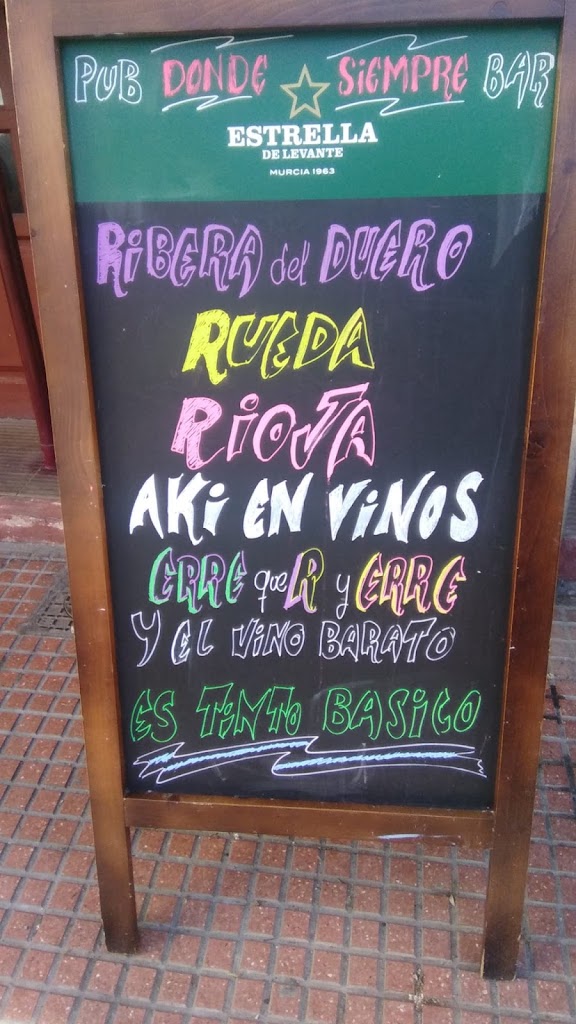 PUB DONDE SiEMPRE BAR
ESTRELLA
DE LEVANTE
MURCIA 1963
RiBERA del DUERO
RUEDA
RiOJA
AKi EN ViNOS
ERRE queR y ERRE
Y EL ViNO BARATO
ES TiNTO BASiCO